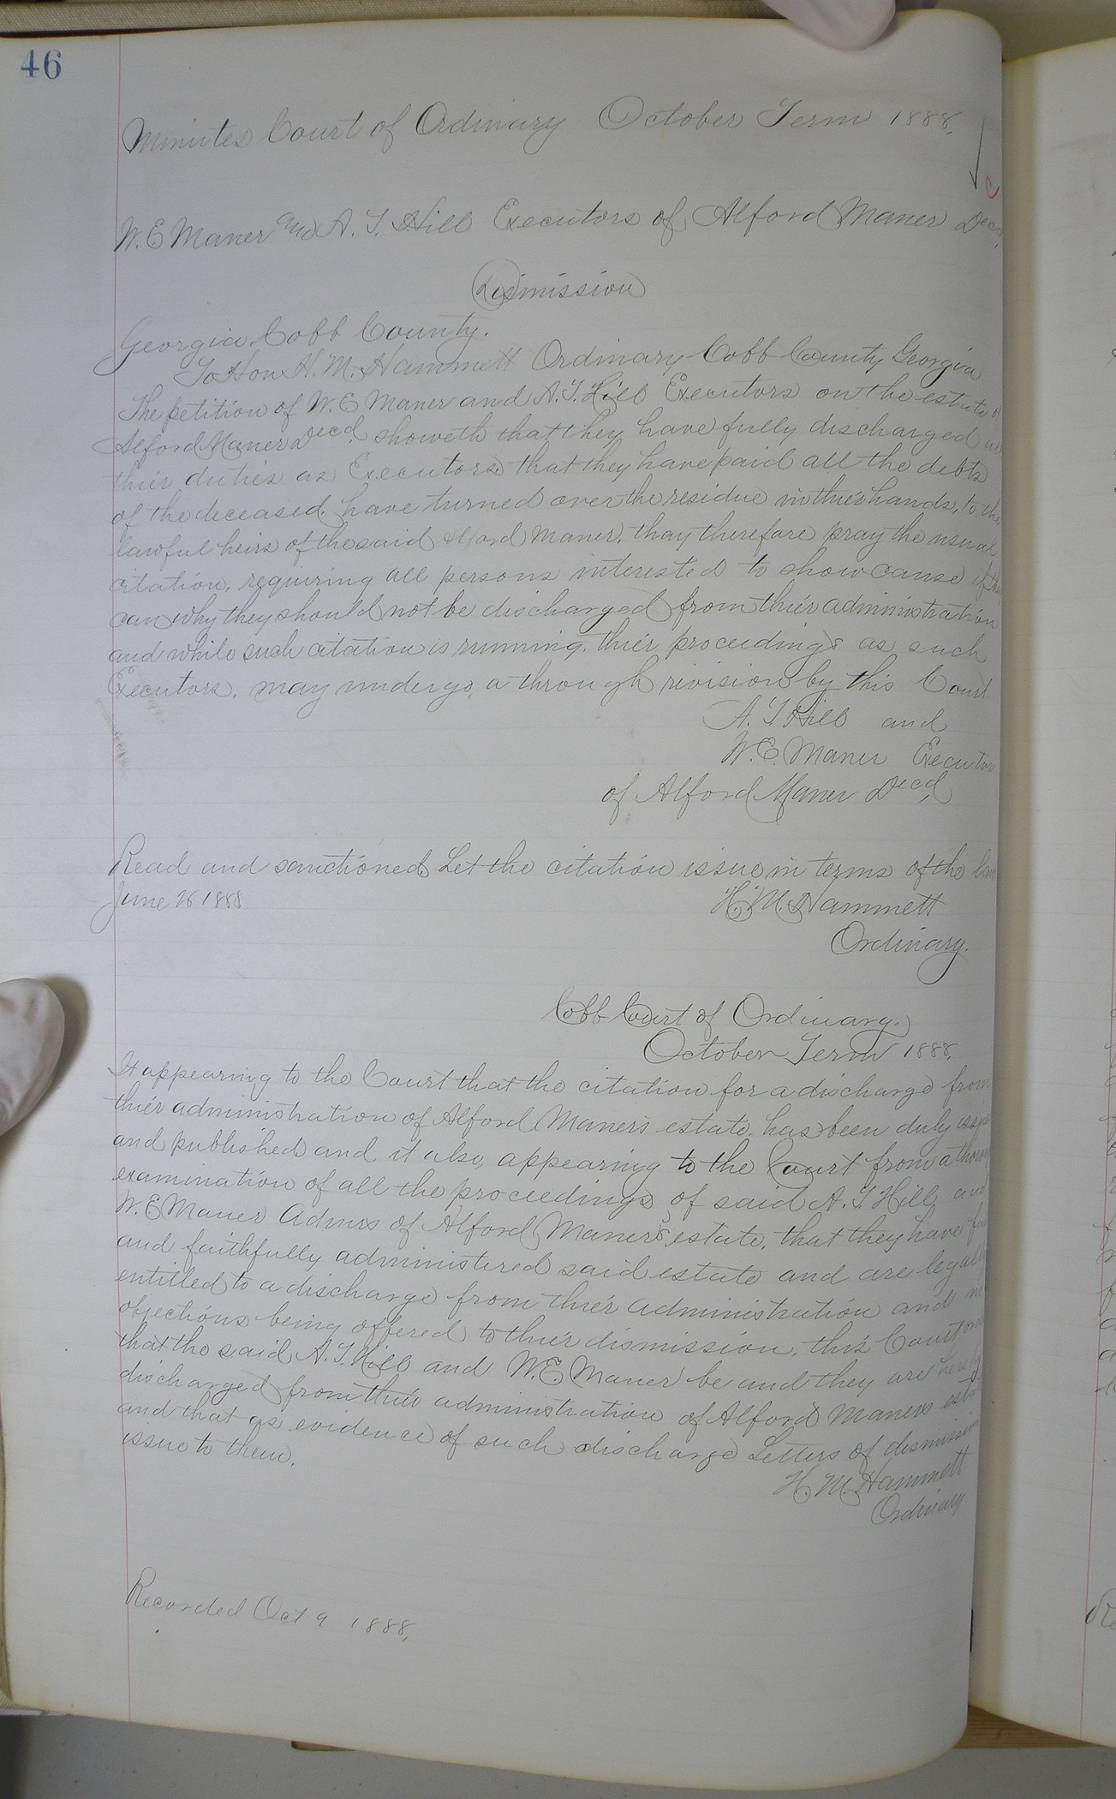 46
Minutes Court of Ordinary October Term 1888.
W. E Maner and A. J. Hill Executors of Alford Maner Decd
Dismission
Georgia, Cobb County.
To Hon H. M. Hammett Ordinary Cobb County Georgia
The petition of W. E Maner and A. J. Hill Executors on the estate of
Alford Maner Decd showeth that they have fully discharged all
thier duties as Executors, that they have paid all the debts
of the deceased, have turned over the residue in thier hands, to the
lawful heirs of the said Alford Maner. thay therefore pray the usual
citation, requiring all persons interested to show cause if they
can why they should not be discharged from thier administration
and while such citation is running, thier proceedings as such
Executors, may undergo a through rivision by this Court
A. J Hill and
W. E. Maner Executors
of Alford Maner Decd,
Read and sanctioned Let the citation issue in terms of the law
June 26 1888 H. M. Hammett
Ordinary.
Cobb Court of Ordinary.
October Term 1888.
It appearing to the Court that the citation for a discharge from
thier administration of Alford Maners estate, has been duly issued
and published and it also, appearing to the Court from a thorough
examination of all the proceedings of said A. J. Hill, and
W. E Maner Admrs of Alford Maner's estate, that they have fully
and faithfully administered said estate and are legally
entitled to a discharge from thier administration and no
objections being offered to thier dismission, this Court orders
that the said A. J. Hill and W. E. Maner be and they are hereby
discharged from thier administration of Alford Maners estate
and that as evidence of such discharge Letters of dismission
issue to them.
H. M. Hammett
Ordinary
Recorded Oct 9 1888,